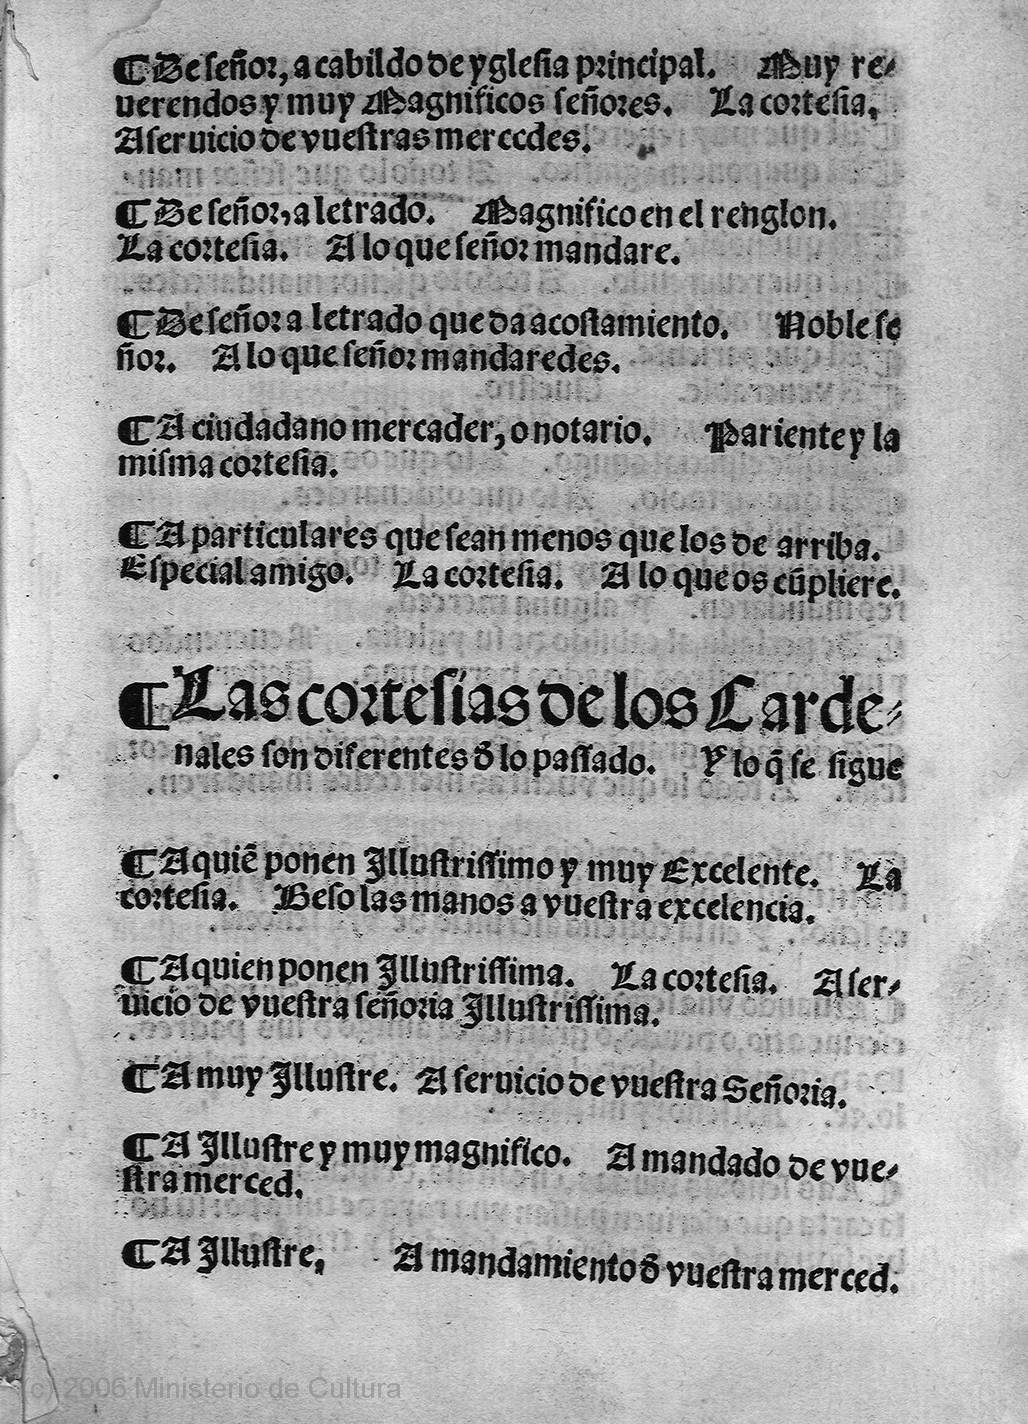 ¶ De señor, a cabildo de yglesia principal. Muy re-
uerendos y muy Magnificos señores. La cortesia.
A seruicio de vuestras mercedes.
¶ De señor, a letrado. Magnifico en el renglon.
La cortesia. A lo que señor mandare.
¶ De señor a letrado que da acostamiento. Noble se
ñor. A lo que señor mandaredes.
¶ A ciudadano mercader, o notario. Pariente y la
misma cortesia.
¶ A particulares que sean menos que los de arriba.
Especial amigo. La cortesia. A lo que os cũpliere.
¶ Las cortesias de los Carde-
nales son diferentes đ lo passado. Y lo q̃ se sigue
¶ A quiẽ ponen Illustrissimo y muy Excelente. La
cortesia. Beso las manos a vuestra excelencia.
¶ A quien ponen Illustrissima. La cortesia. A ser-
uicio de vuestra señoria Illustrissima.
¶ A muy Illustre. A seruicio de vuestra Señoria.
¶ A Illustre y muy magnifico. A mandado de vue-
stra merced.
¶ A Illustre, A mandamiento đ vuestra merced.
(c) 2006 Ministerio de Cultura